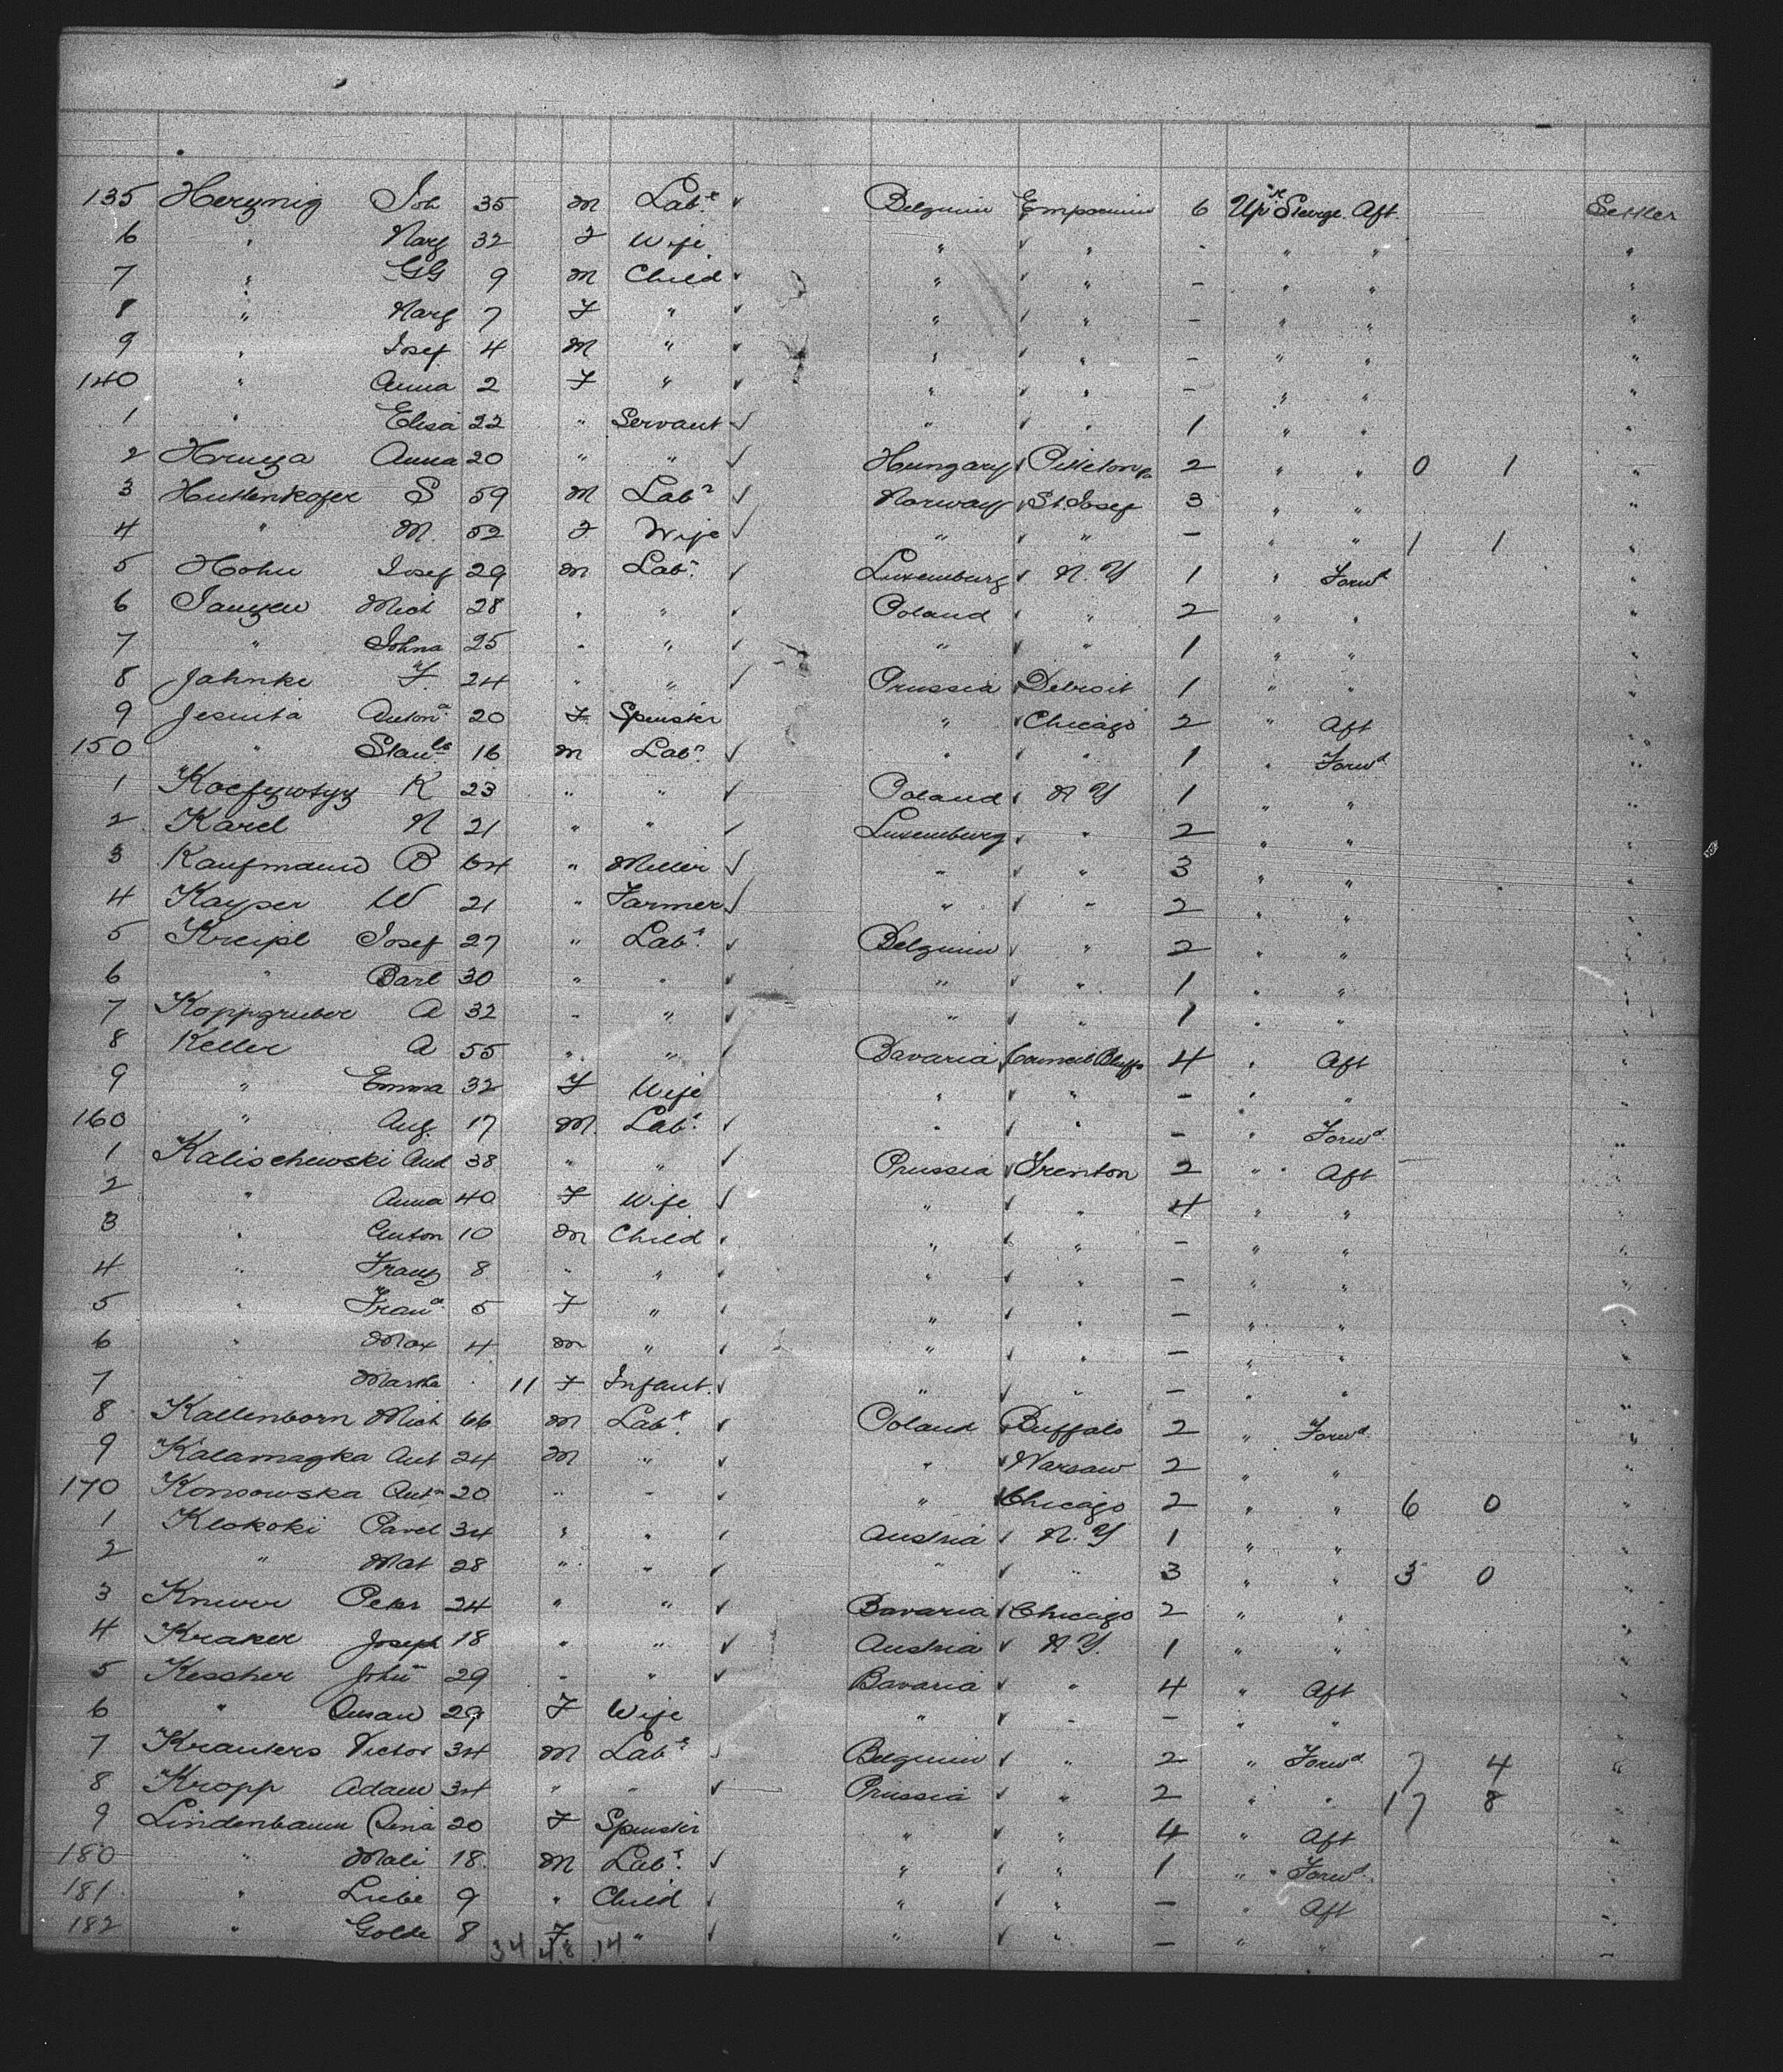 135 Herznig Joh 35 m Labr ✓ Belguim Emporium 6 Upr Sterge. Aft. Settler
6 " Marg 32 F Wife " ✓ " - " " "
7 " GG 9 m Child ✓ " ✓ " - " " "
8 " Marg 7 F " ✓ " ✓ " - " " "
9 " Josef 4 m " ✓ " ✓ " - " " "
140 " Anna 2 F " ✓ " ✓ " - " " "
1 " Elisa 22 " Servant ✓ " ✓ " 1 " " "
2 Hruza Anna 20 " " ✓ Hungary ✓ Pitteton Pa 2 " " 0 1 "
3 Huttenkofer S 59 m Labr ✓ Norway ✓ St. Josef 3 " " "
4 " M. 52 F Wife ✓ " ✓ " - " " 1 1 "
5 Hohn Josef 29 m Labr. ✓ Luxemburg ✓ N.Y 1 " Forwd "
6 Janzen Mich 28 " " ✓ Poland ✓ " 2 " " "
7 " Johna 25 " " ✓ " ✓ " 1 " " "
8 Jahnke F. 24 " " ✓ Prussia ✓ Detroit 1 " " "
9 Jesuita Antona 20 F Spinster " ✓ Chicago 2 " Aft "
150 " Stanls 16 m Labr ✓ " ✓ " 1 " Forwd "
1 K 23 " " ✓ Poland ✓ N Y 1 " " "
2 Karel N 21 " " ✓ Luxemburg ✓ " 2 " " "
3 Kaufmann B 64 " Miller ✓ " ✓ " 3 " " "
4 Kayser W 21 " Farmer ✓ " ✓ " 2 " " "
5 Kreipl Josef 27 " Labr. ✓ Belguim ✓ " 2 " " "
6 " Barl 30 " " ✓ " ✓ " 1 " " "
7 Koppgruber A 32 " " ✓ " ✓ " 1 " " "
8 Keller A 55 " " ✓ Bavaria ✓ Council Bluffs 4 " Aft "
9 " Emma 32 F Wife " ✓ " - " " "
160 " Aug. 17 M. Labr. ✓ " ✓ " - " Forwd "
1 Kalischewski And 38 " " ✓ Prussia ✓ Trenton 2 " Aft "
2 " Anna 40 F Wife ✓ " ✓ " 4 " " "
3 " Anton 10 m Child ✓ " ✓ " - " " "
4 " Franz 8 " " ✓ " ✓ " - " " "
5 " Frana 5 F " ✓ " ✓ " - " " "
6 " Max 4 m " ✓ " ✓ " - " " "
7 " Martha 11 F Infant. ✓ " ✓ " - " " "
8 Kallenborn Mich 66 m Labr. ✓ Poland ✓ Buffalo 2 " Forwd "
9 Kalamagka Ant 24 m " ✓ " ✓ Warsaw 2 " " "
170 Konsowska Antn 20 " " ✓ " ✓ Chicago 2 " " 6 0 "
1 Klokoki Pavel 34 " " ✓ Austria ✓ N.Y 1 " " "
2 " Mat 28 " " ✓ " ✓ " 3 " " 3 0 "
3 Peter 24 " " ✓ Bavaria ✓ Chicago 2 " " "
4 Kraker Joseph 18 " " ✓ Austria ✓ N Y. 1 " " "
5 Kessher Johnn 29 " " ✓ Bavaria ✓ " 4 " Aft "
6 " 29 F Wife " ✓ " - " " "
7 Krauters Victor 34 M Labr ✓ Belguim ✓ " 2 " Forwd 7 4 "
8 Kropp Adam 34 " " ✓ Prussia ✓ " 2 " " 17 8 "
9 Lindenbaum 20 F Spinster " ✓ " 4 " Aft "
180 " Mali 18 M Labr. ✓ " ✓ " 1 " Forwd. "
181 " Liebe 9 " Child ✓ " ✓ " - " Aft "
182 " Golde 8 F " ✓ " ✓ " - " " "
34 48 14